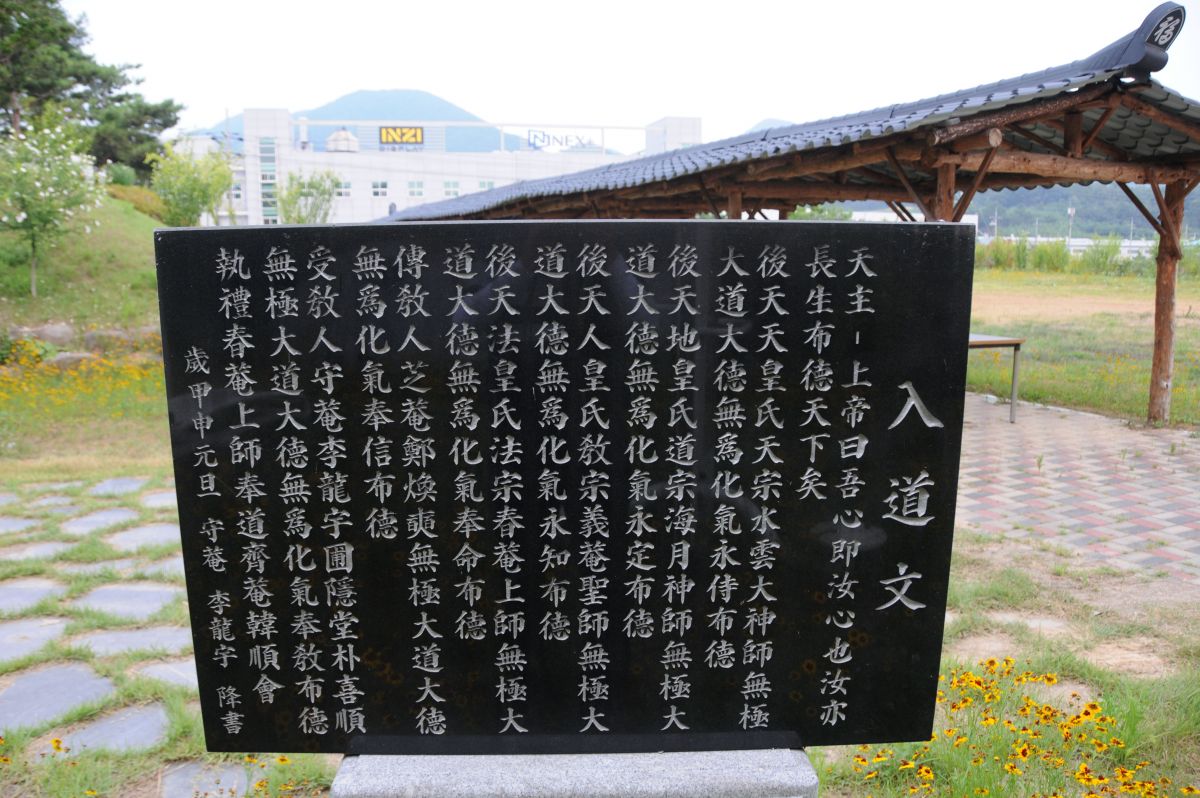 福
INZI
NEX
入道文
天主-上帝曰吾心即汝心也汝亦
長生布德天下矣
後天天皇氏天宗水雲大神師無極
大道大德無爲化氣永侍布德
後天地皇氏道宗海月神師無極大
道大德無爲化氣永定布德
後天人皇氏敎宗義菴聖師無極大
道大德無爲化氣永知布德
後天法皇氏法宗春菴上師無極大
道大德無爲化氣奉命布德
傳敎人芝菴鄭煥奭無極大道大德
無爲化氣奉信布德
受敎人守菴李龍宇圃隱堂朴喜順
無極大道大德無爲化氣奉敎布德
執禮春菴上師奉道齊菴韓順會
歲甲申元旦 守菴 李龍宇 降書